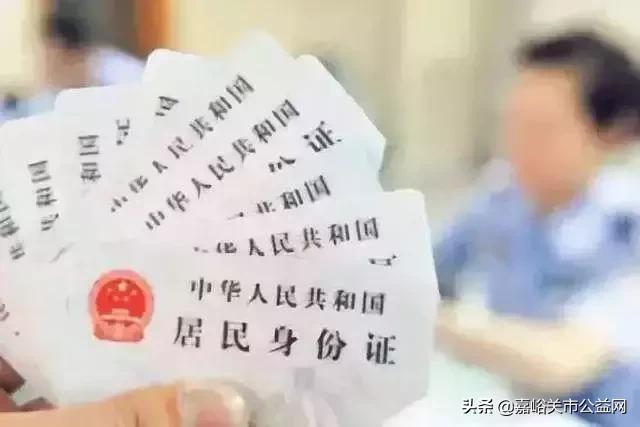 和国
和国
中华人民共和国
中华人民共和国
证
共和国
华人民共和国
证
中华人民共和国
居民身份证
头条 @嘉峪关市公益网